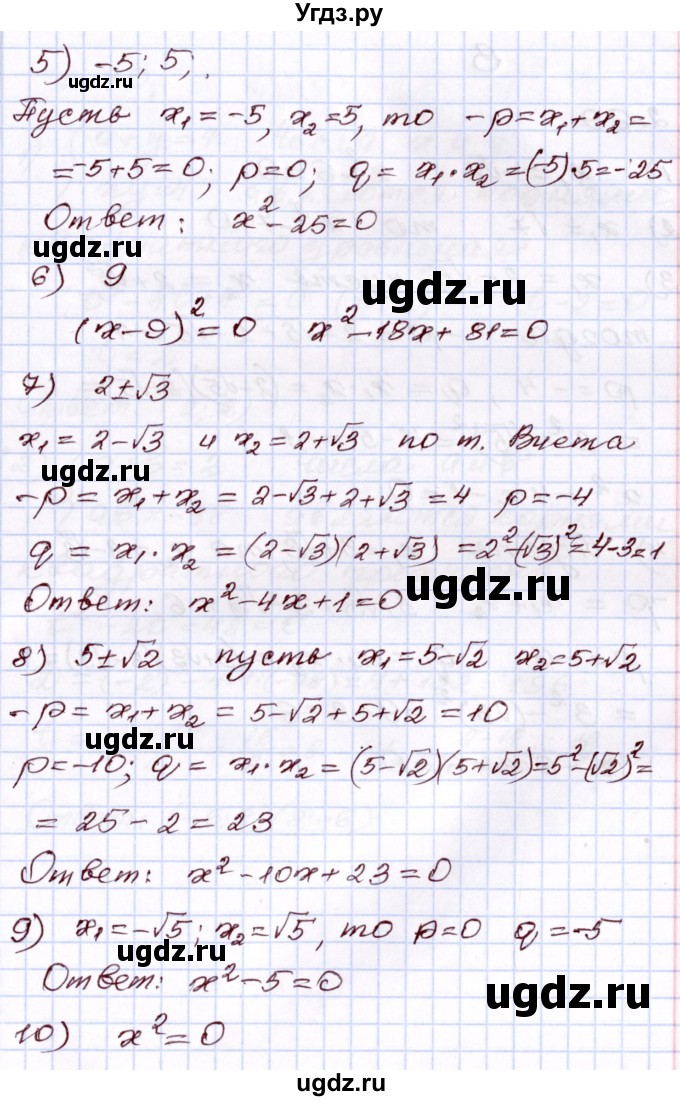 Угдз.ру
5) -5; 5;
ugdz.ru
Пусть x₁ = -5, x₂ = 5, то -p = x₁ + x₂ =
= -5 + 5 = 0; p = 0; q = x₁ · x₂ = (-5) · 5 = -25
Ответ: x² - 25 = 0
ugdz.ru
6) 9
ugdz.ru
(x - 9)² = 0 x² - 18x + 81 = 0
7) 2 ± √3
x₁ = 2 - √3 и x₂ = 2 + √3 по т. Виета
ugdz.ru
-p = x₁ + x₂ = 2 - √3 + 2 + √3 = 4 p = -4
q = x₁ · x₂ = (2 - √3)(2 + √3) = 2² - (√3)² = 4 - 3 = 1
ugdz.ru
Ответ: x² - 4x + 1 = 0
8) 5 ± √2 пусть x₁ = 5 - √2 x₂ = 5 + √2
-p = x₁ + x₂ = 5 - √2 + 5 + √2 = 10
ugdz.ru
p = -10; q = x₁ · x₂ = (5 - √2)(5 + √2) = 5² - (√2)² =
= 25 - 2 = 23
Ответ: x² - 10x + 23 = 0
9) x₁ = -√5; x₂ = √5, то p = 0 q = -5
ugdz.ru
Ответ: x² - 5 = 0
ugdz.ru
10) x² = 0
ugdz.ru